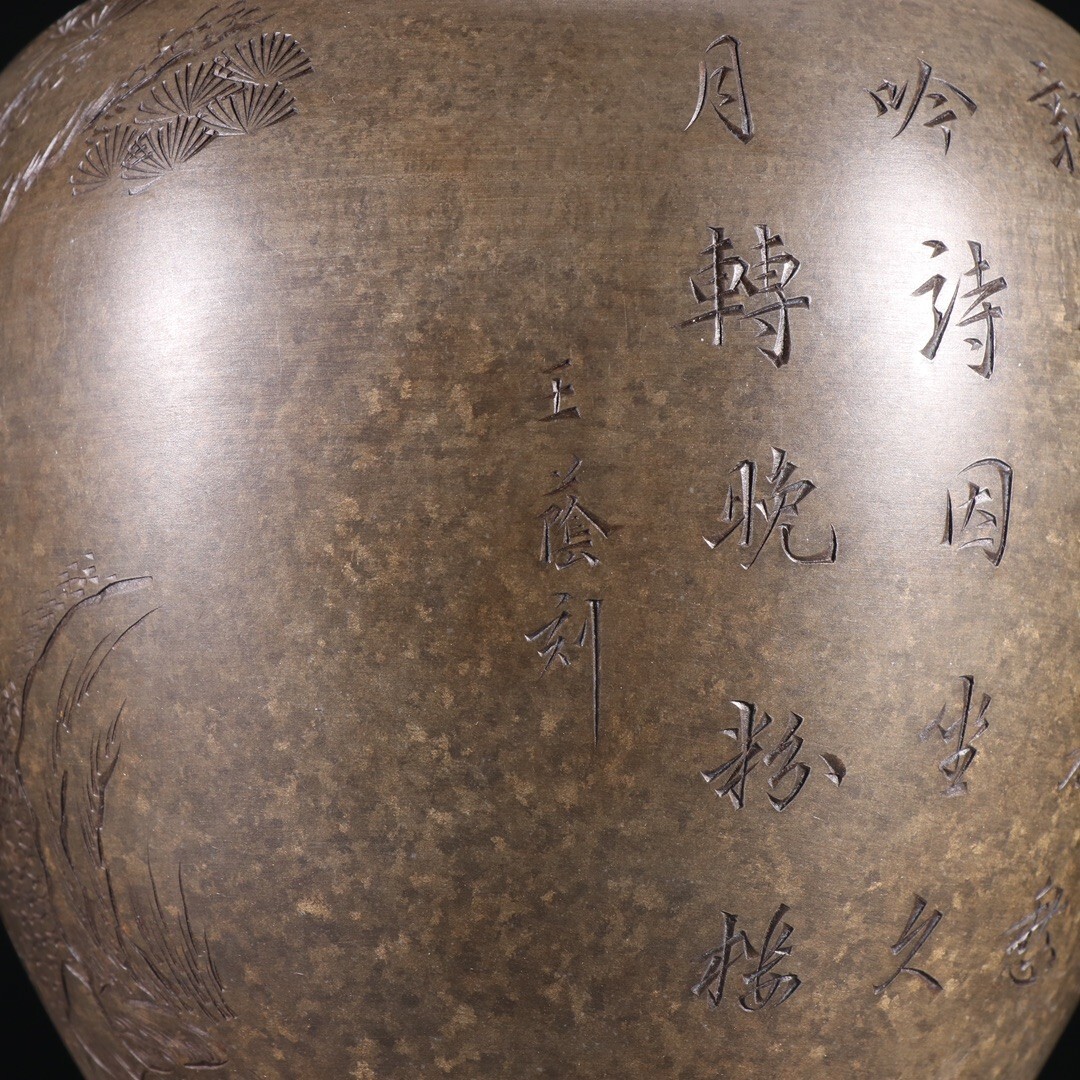 吟詩因坐久
月轉晚粉楼
王蔭刻